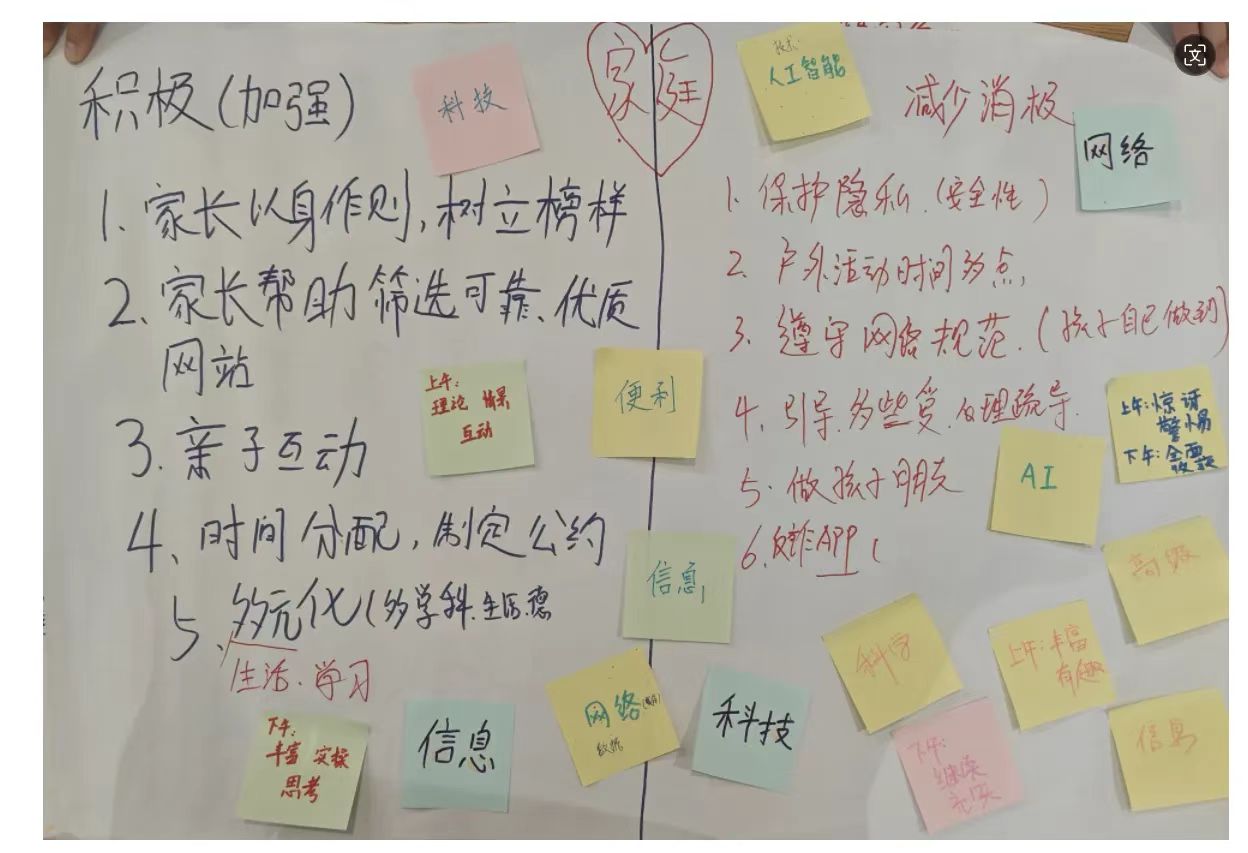 家庭
积极(加强)
1. 家长以身作则,树立榜样
2、家长帮助筛选可靠、优质
网站
3. 亲子互动
4、时间分配,制定公约
5、多元化(多学科.生活.德
生活、学习
减少消极
1. 保护隐私.(安全性)
2、户外活动时间多点,
3. 遵守网络规范.(孩子自己做到)
4、引导.多些爱.心理疏导.
5. 做孩子朋友
6.反诈APP(
科技
技术:
人工智能
网络
上午:
理论 情景
互动
便利
上午:惊讶
警惕
下午:全面
AI
信息
高级
科学
上午:丰富
有趣
下午:
丰富 实操
思考
信息
网络
数据
科技
下午:
继续
信息